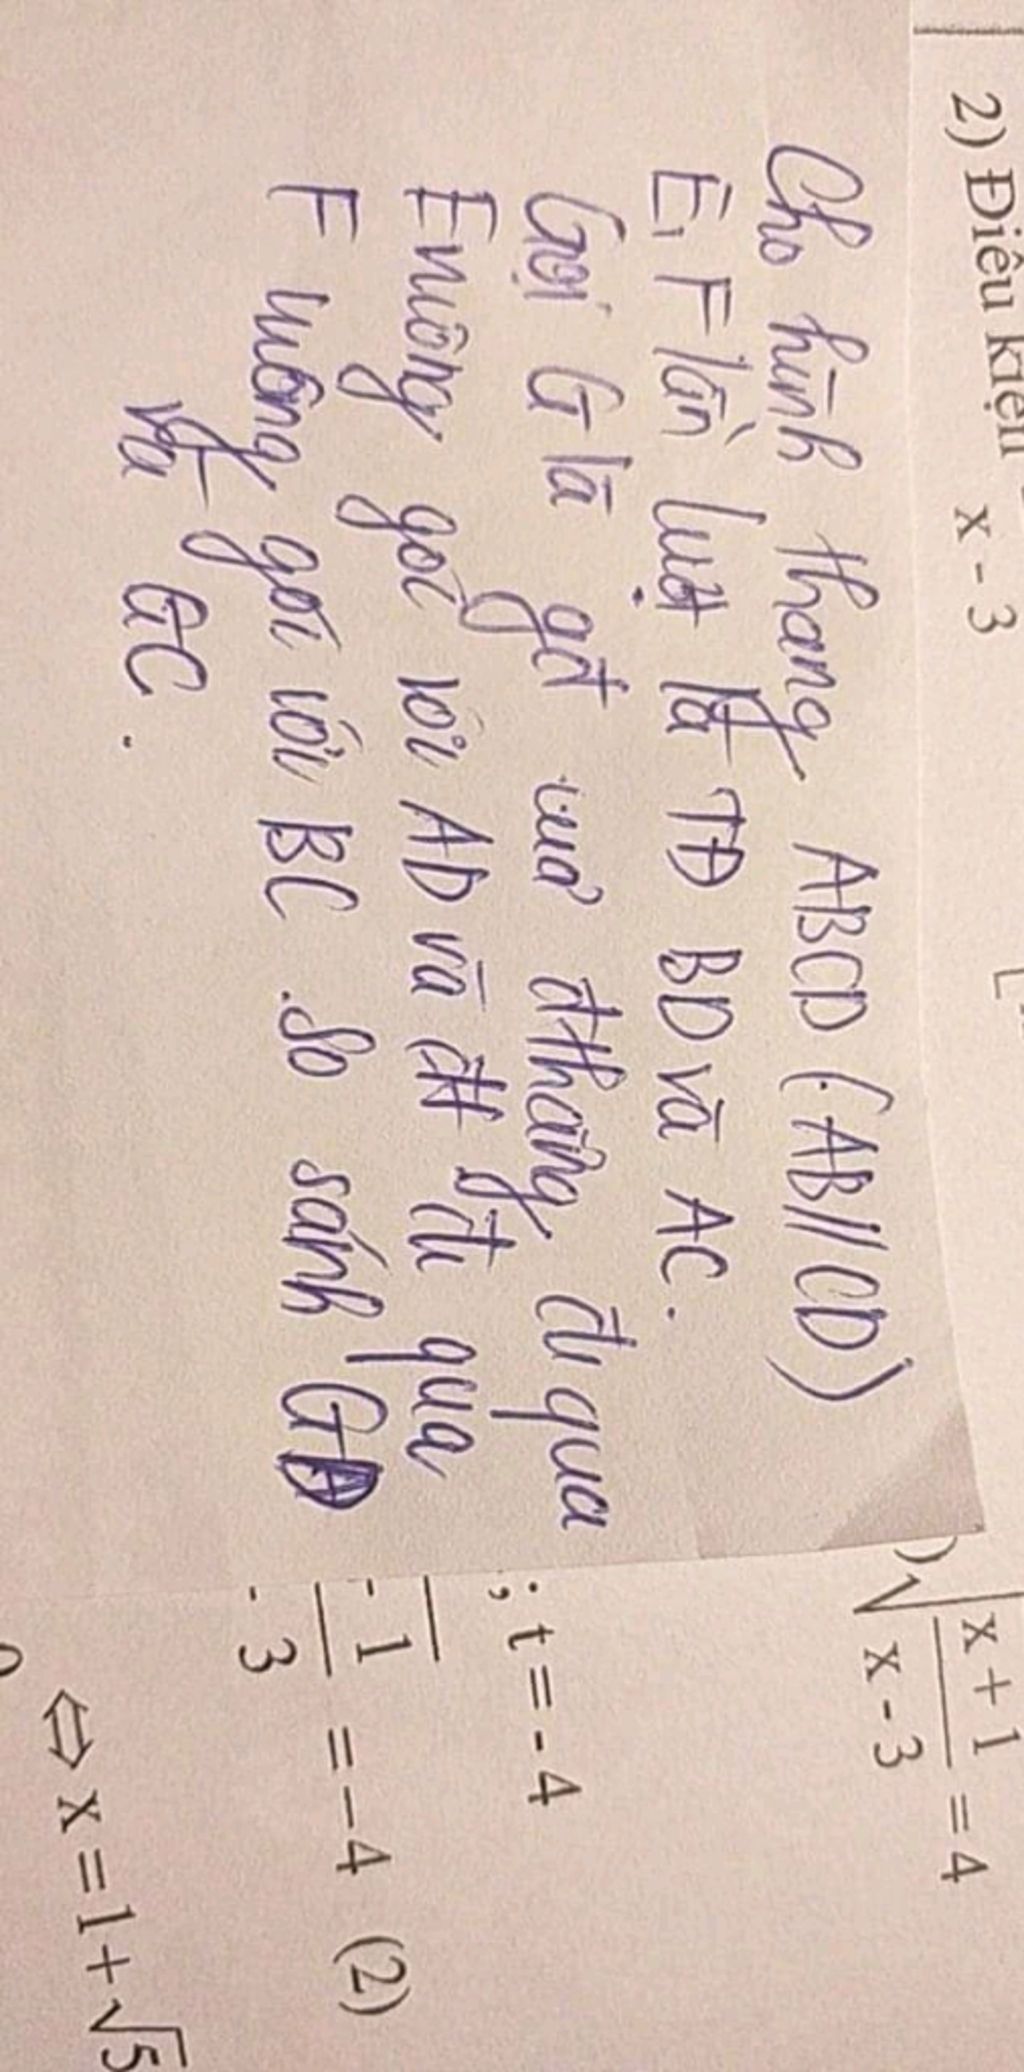 2) Điều kiện
x - 3
) √ x + 1 / x - 3 = 4
Cho hình thang ABCD (AB//CD)
E, F lần lượt là TĐ BD và AC.
Gọi G là gđ của đthẳng đi qua
E vuông góc với AD và đt đi qua
F vuông góc với BC. So sánh GD
và GC.
; t = - 4
- 1 / - 3 = - 4 (2)
⇔ x = 1 + √5